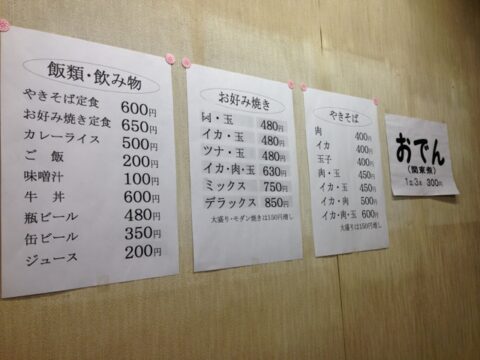 飯類・飲み物
やきそば定食 600円
お好み焼き定食 650円
カレーライス 500円
ご飯 200円
味噌汁 100円
牛丼 600円
瓶ビール 480円
缶ビール 350円
ジュース 200円
お好み焼き
肉・玉 480円
イカ・玉 480円
ツナ・玉 480円
イカ・肉・玉 630円
ミックス 750円
デラックス 850円
大盛り・モダン焼きは150円増し
やきそば
肉 400円
イカ 400円
玉子 400円
肉・玉 450円
イカ・玉 450円
イカ・肉 500円
イカ・肉・玉 600円
大盛りは150円増し
おでん
(関東煮)
1皿3本 300円